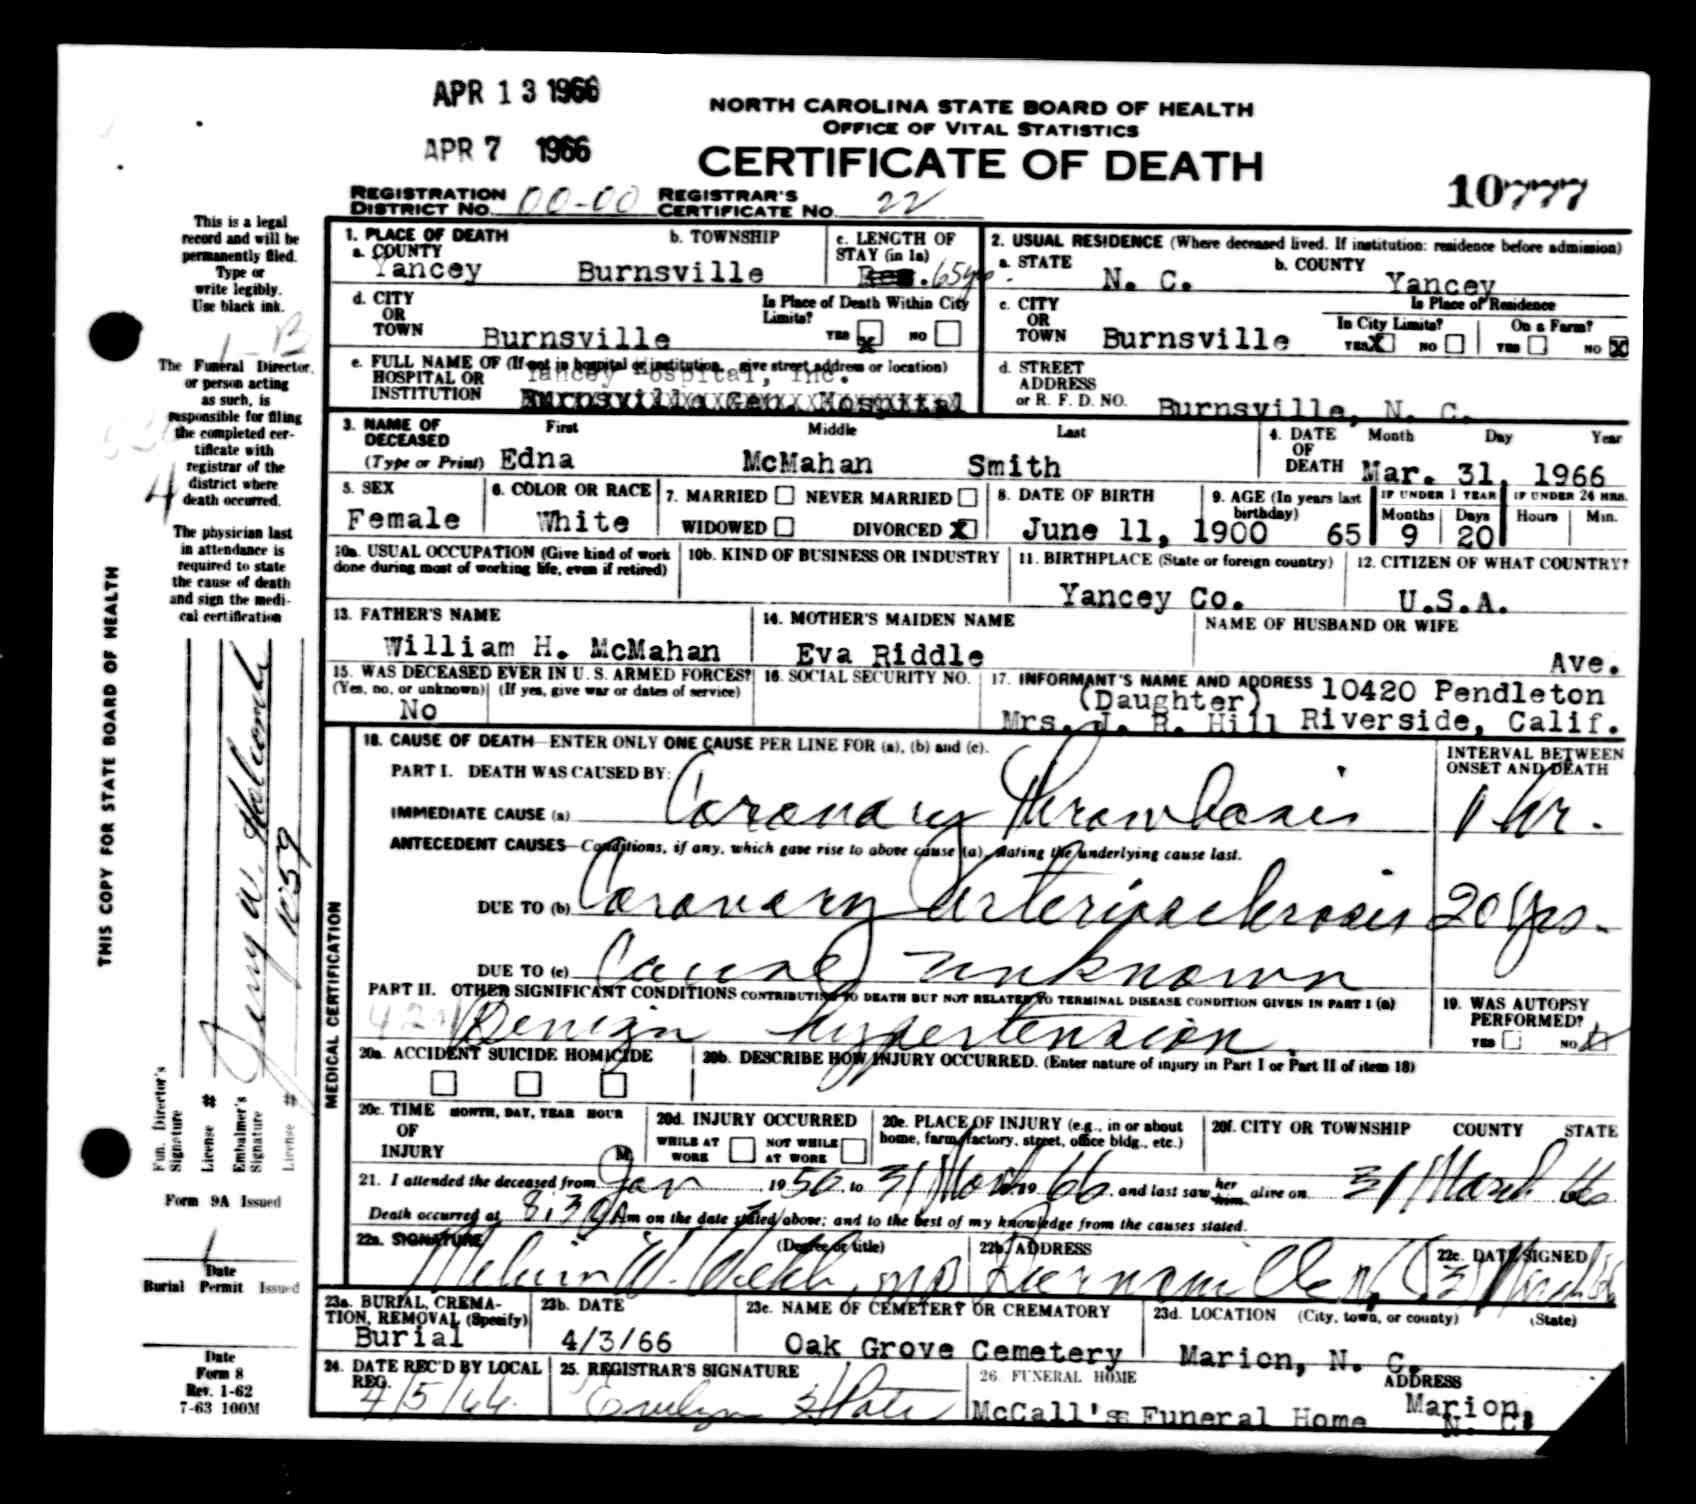 APR 13 1966
APR 7 1966
NORTH CAROLINA STATE BOARD OF HEALTH
OFFICE OF VITAL STATISTICS
CERTIFICATE OF DEATH
10777
REGISTRATION DISTRICT No. 00-00 REGISTRAR'S CERTIFICATE No. 22
This is a legal
record and will be
permanently filed.
Type or
write legibly.
Use black ink.
1-B
The Funeral Director,
or person acting
as such, is
responsible for filing
the completed cer-
tificate with
registrar of the
district where
death occurred.
4
The physician last
in attendance is
required to state
the cause of death
and sign the medi-
cal certification
THIS COPY FOR STATE BOARD OF HEALTH
Fun. Director's Signature
License #
Embalmer's Signature
License # 1059
Form 9A Issued
Date
Burial Permit Issued
Date
Form 8
Rev. 1-62
7-63 100M
1. PLACE OF DEATH
a. COUNTY Yancey
b. TOWNSHIP Burnsville
c. LENGTH OF STAY (in 1a) Res. 65 yrs.
2. USUAL RESIDENCE (Where deceased lived. If institution: residence before admission)
a. STATE N. C.
b. COUNTY Yancey
d. CITY OR TOWN Burnsville
Is Place of Death Within City Limits? YES X NO
c. CITY OR TOWN Burnsville
Is Place of Residence
In City Limits? YES X NO
On a Farm? YES NO X
e. FULL NAME OF HOSPITAL OR INSTITUTION (If not in hospital or institution, give street address or location)
Yancey Hospital, Inc.
Burnsville Gen. Hospital
d. STREET ADDRESS or R. F. D. NO. Burnsville, N. C.
3. NAME OF DECEASED (Type or Print)
First Middle Last
Edna McMahan Smith
4. DATE OF DEATH Month Day Year
Mar. 31, 1966
5. SEX Female
6. COLOR OR RACE White
7. MARRIED NEVER MARRIED
WIDOWED DIVORCED X
8. DATE OF BIRTH June 11, 1900
9. AGE (In years last birthday) 65
IF UNDER 1 YEAR Months 9 Days 20
IF UNDER 24 HRS. Hours Min.
10a. USUAL OCCUPATION (Give kind of work done during most of working life, even if retired)
10b. KIND OF BUSINESS OR INDUSTRY
11. BIRTHPLACE (State or foreign country) Yancey Co.
12. CITIZEN OF WHAT COUNTRY? U.S.A.
13. FATHER'S NAME William H. McMahan
14. MOTHER'S MAIDEN NAME Eva Riddle
NAME OF HUSBAND OR WIFE
15. WAS DECEASED EVER IN U. S. ARMED FORCES? (Yes, no, or unknown) (If yes, give war or dates of service)
No
16. SOCIAL SECURITY NO.
17. INFORMANT'S NAME AND ADDRESS
(Daughter) 10420 Pendleton Ave.
Mrs. J. R. Hill Riverside, Calif.
MEDICAL CERTIFICATION
18. CAUSE OF DEATH—ENTER ONLY ONE CAUSE PER LINE FOR (a), (b) and (c).
INTERVAL BETWEEN ONSET AND DEATH
PART I. DEATH WAS CAUSED BY:
IMMEDIATE CAUSE (a) Coronary Thrombosis 1 hr.
ANTECEDENT CAUSES—Conditions, if any, which gave rise to above cause (a), stating the underlying cause last.
DUE TO (b) Coronary Arteriosclerosis 20 yrs.
DUE TO (c) Cause unknown
PART II. OTHER SIGNIFICANT CONDITIONS CONTRIBUTING TO DEATH BUT NOT RELATED TO TERMINAL DISEASE CONDITION GIVEN IN PART I (a)
Benign hypertension.
19. WAS AUTOPSY PERFORMED? YES NO X
20a. ACCIDENT SUICIDE HOMICIDE
20b. DESCRIBE HOW INJURY OCCURRED. (Enter nature of injury in Part I or Part II of item 18)
20c. TIME OF INJURY MONTH, DAY, YEAR HOUR M
20d. INJURY OCCURRED WHILE AT WORK NOT WHILE AT WORK
20e. PLACE OF INJURY (e.g., in or about home, farm, factory, street, office bldg., etc.)
20f. CITY OR TOWNSHIP COUNTY STATE
21. I attended the deceased from Jan 1950 to 31 March 1966, and last saw her him alive on 31 March 66
Death occurred at 8:30 A m on the date stated above; and to the best of my knowledge from the causes stated.
22a. SIGNATURE (Degree or title) Melvin W. Webb, MD
22b. ADDRESS Burnsville N.C.
22c. DATE SIGNED 31 March 66
23a. BURIAL, CREMATION, REMOVAL (Specify) Burial
23b. DATE 4/3/66
23c. NAME OF CEMETERY OR CREMATORY Oak Grove Cemetery
23d. LOCATION (City, town, or county) (State) Marion, N. C.
24. DATE REC'D BY LOCAL REG. 4/5/66
25. REGISTRAR'S SIGNATURE Evelyn
26. FUNERAL HOME McCall's Funeral Home
ADDRESS Marion, N. C.